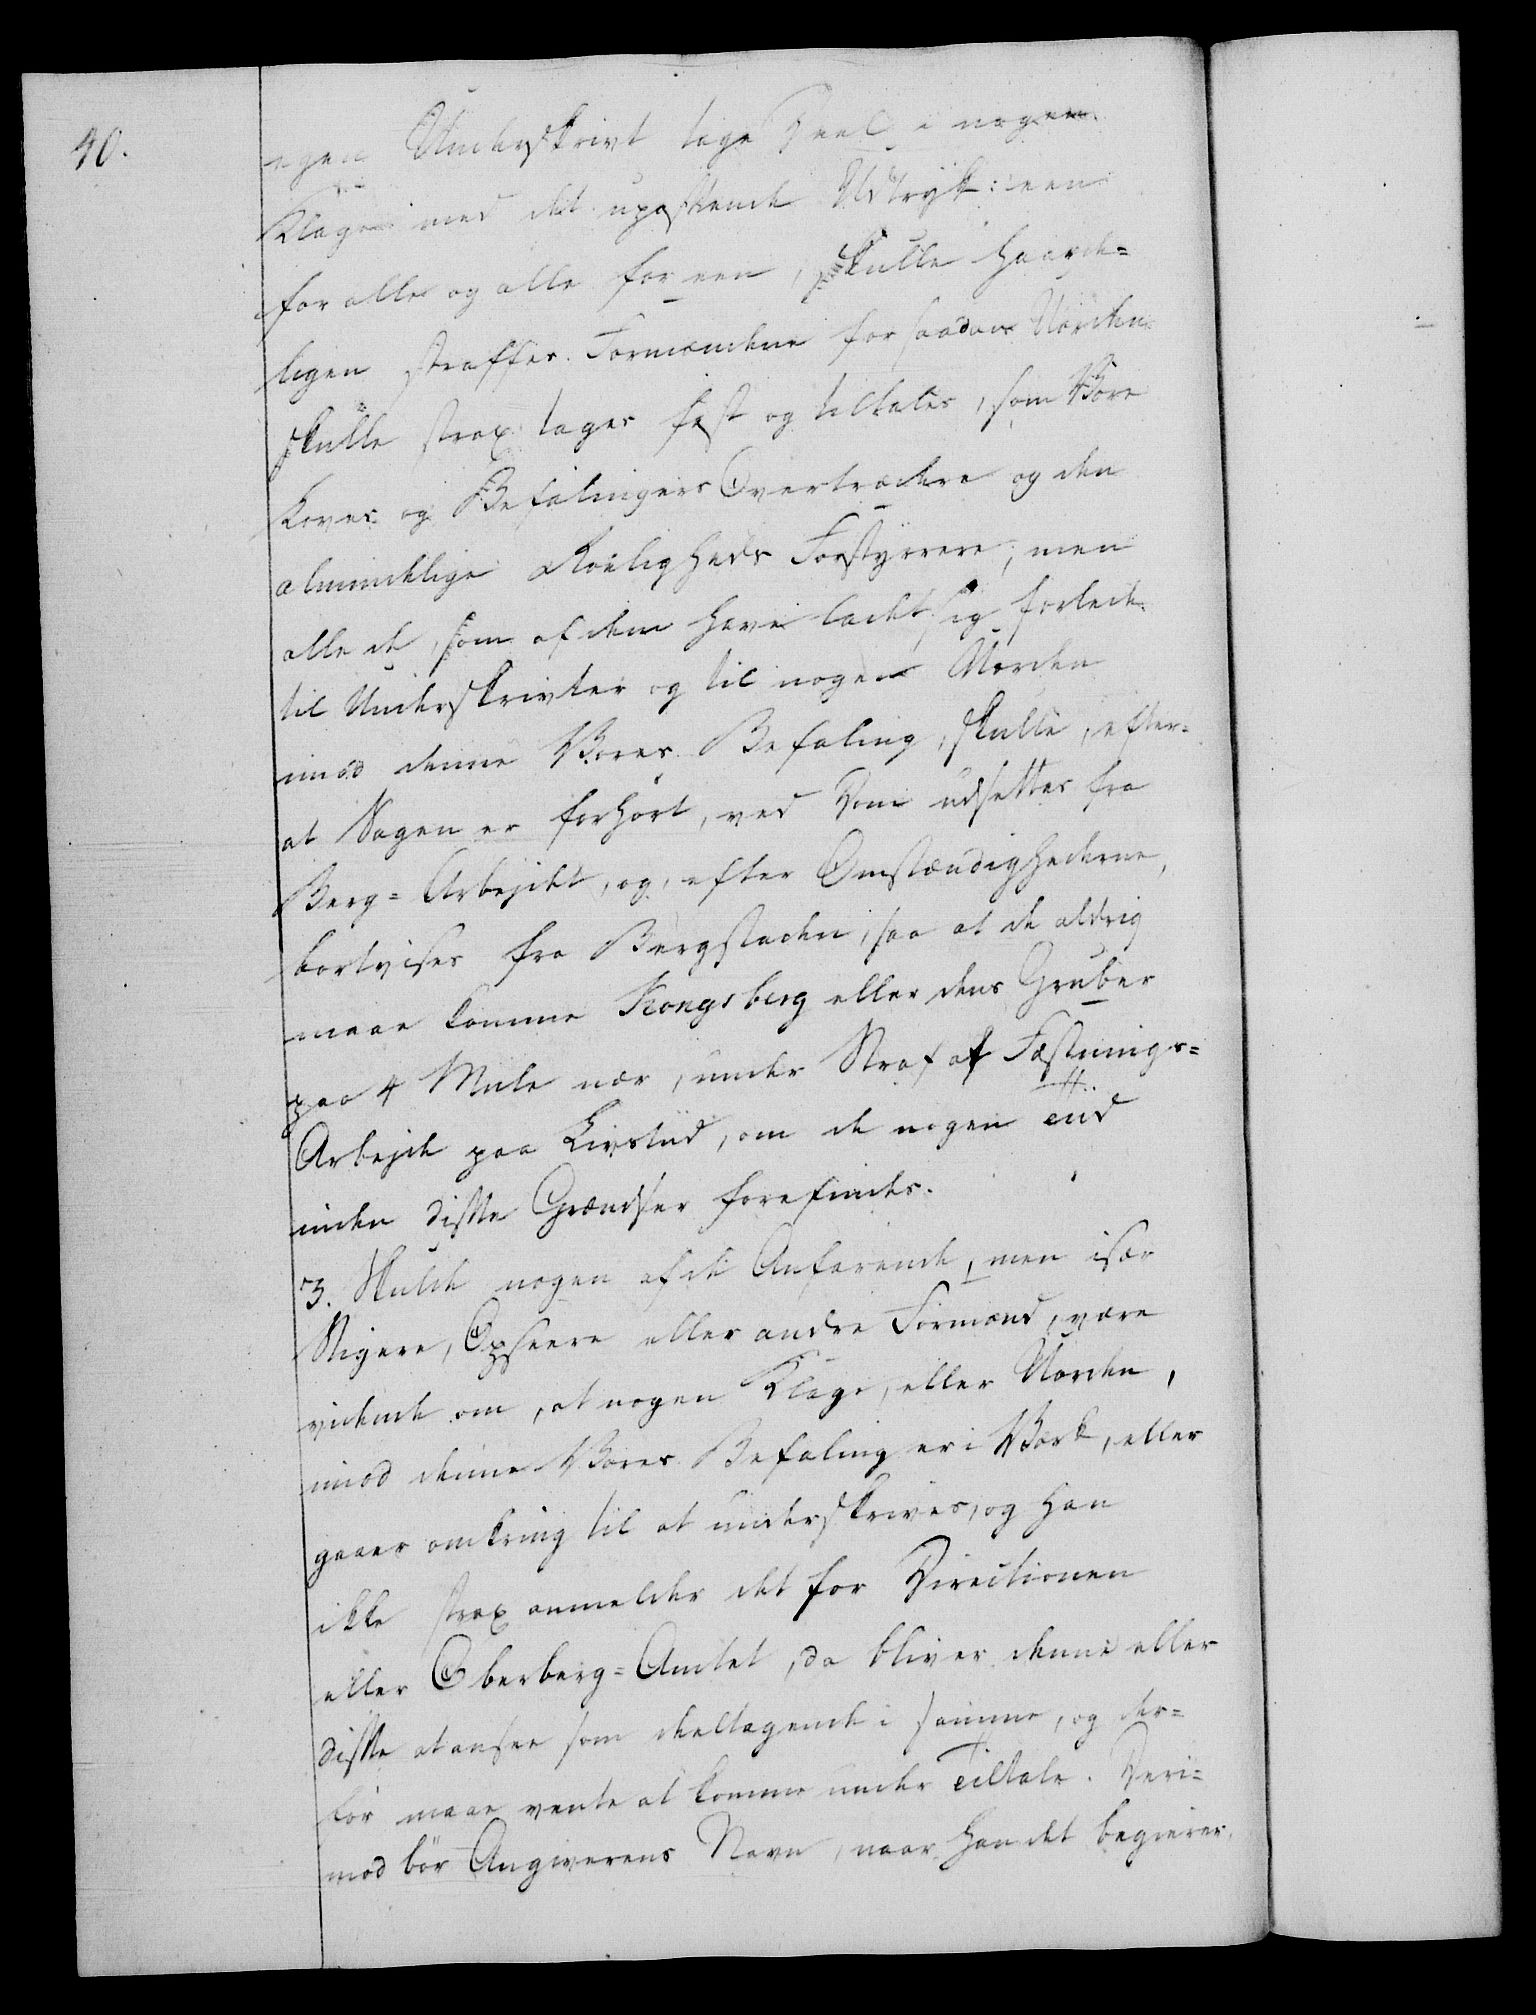 40.
egen Underskrivt tage Deel i nogen
Klage med det upassende Udtryk: een
for alle og alle for een, skulle haarde-
ligen straffes. Formændene for saadan Uorden
skulle strax tages fast og tiltales, som Vore
Loves og Befalingers Overtrædere og den
almindelige Roeligheds Forstyrrere; men
alle de, som af dem have ladet sig forlede
til Underskrivter og til nogen Uorden
imod denne Vores Befaling, skulle, efter-
at Sagen er forhört, ved Dom udsettes fra
Berg-Arbejdet, og, efter Omstændighederne,
bortvises fra Bergstaden, saa at de aldrig
maae komme Kongsberg eller dens Gruber
paa 4 Mile nær, under Straf af Fæstnings-
Arbejde paa Livstiid, om de nogen tiid
inden disse Grændser forefindes.
3. Skulde nogen af de Anförende, men især
Stigere, Opseere eller andre Formænd, være
vidende om, at nogen Klage, eller Uorden,
imod denne Vores Befaling er i Værk, eller
gaaer omkring til at underskrives, og han
ikke strax anmelder det for Directionen
eller Oberberg-Amtet, da bliver denne eller
disse at ansee som deeltagende i samme, og der-
for maae vente at komme under Tiltale. Deri-
mod bör Angiverens Navn, naar han det begierer,